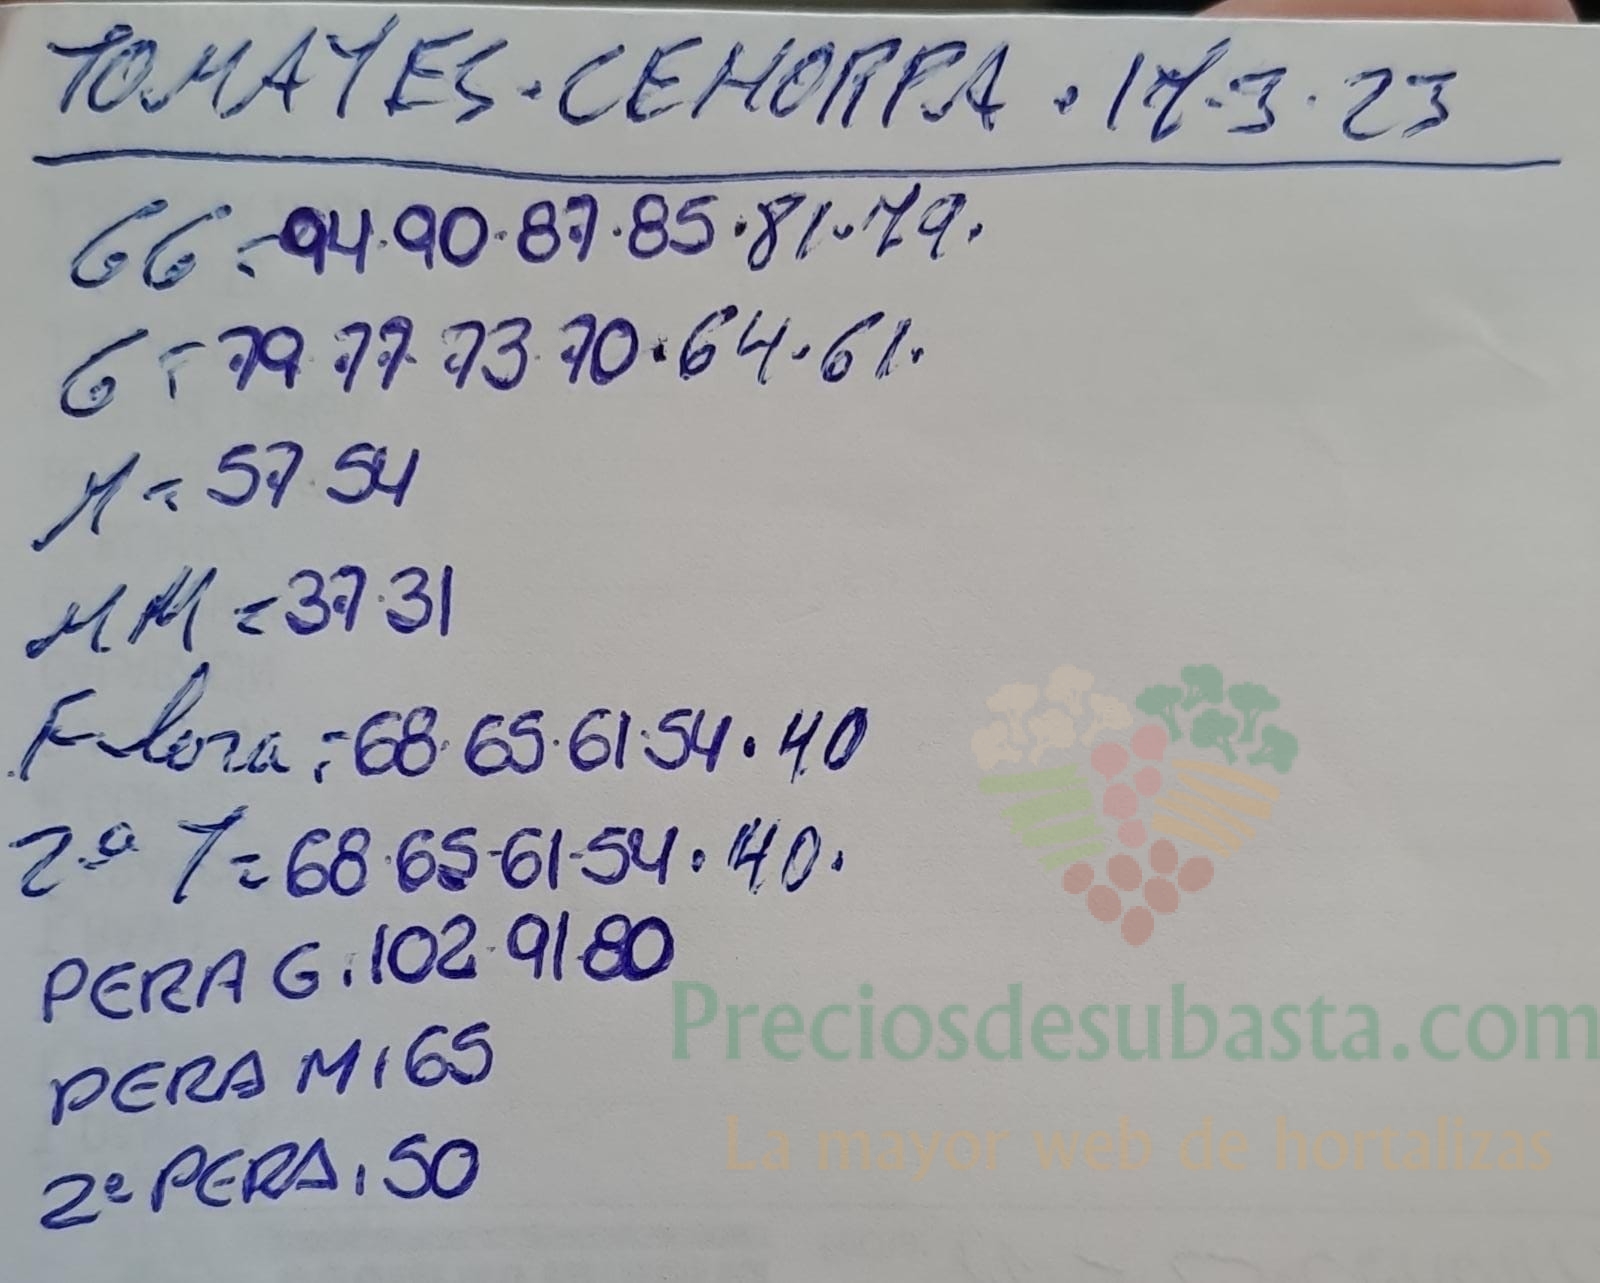 TOMATES · CEHORPA · 17-3-23
GG = 94·90·87·85·81·79.
G = 79 77 73 70·64·61.
M = 57·54
MM = 37·31
Flora = 68·65·61·54·40
2ª T = 68·65·61·54·40.
PERA G: 102·91·80
PERA M: 65
2ª PERA: 50
Preciosdesubasta.com
La mayor web de hortalizas